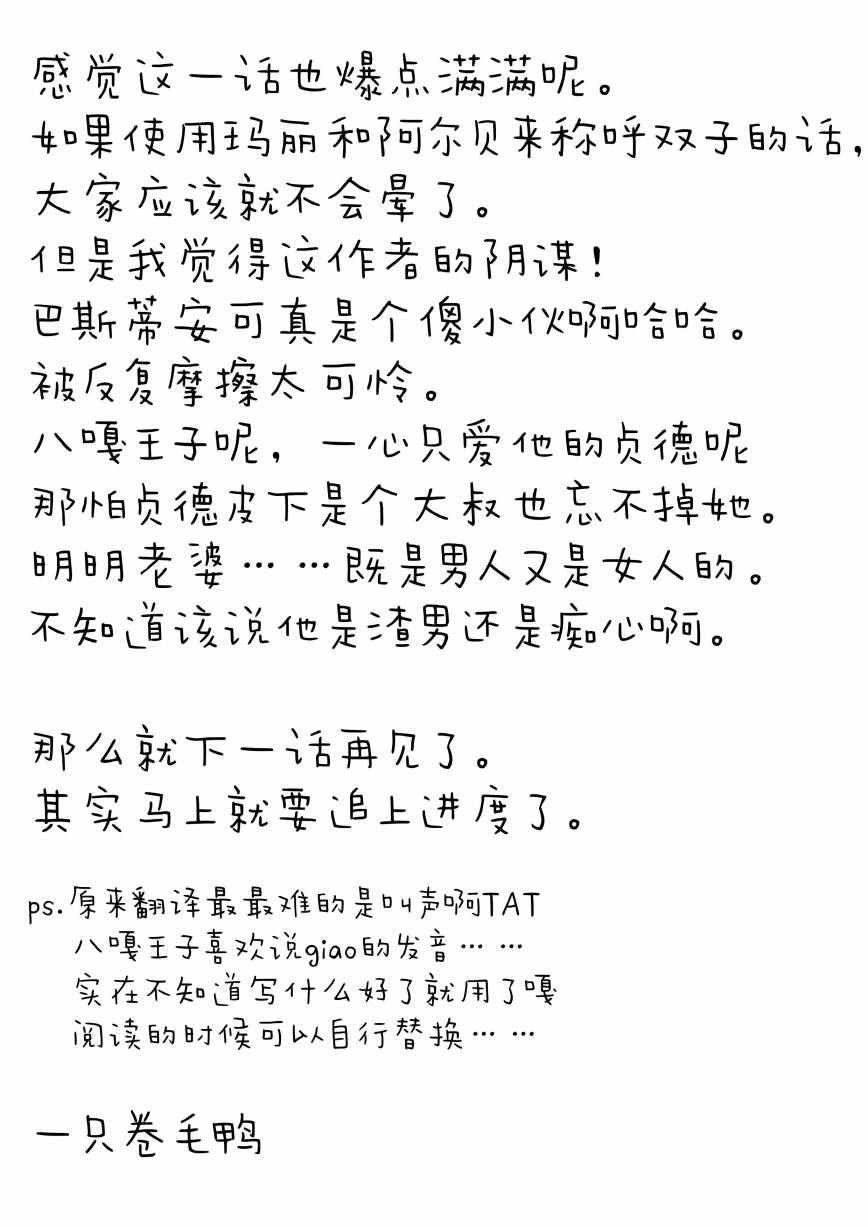 感觉这一话也爆点满满呢。
如果使用玛丽和阿尔贝来称呼双子的话，
大家应该就不会晕了。
但是我觉得这作者的阴谋！
巴斯蒂安可真是个傻小伙啊哈哈。
被反复摩擦太可怜。
八嘎王子呢，一心只爱他的贞德呢
那怕贞德皮下是个大叔也忘不掉她。
明明老婆……既是男人又是女人的。
不知道该说他是渣男还是痴心啊。
那么就下一话再见了。
其实马上就要追上进度了。
ps.原来翻译最最难的是叫声啊TAT
八嘎王子喜欢说giao的发音……
实在不知道写什么好了就用了嘎
阅读的时候可以自行替换……
一只卷毛鸭